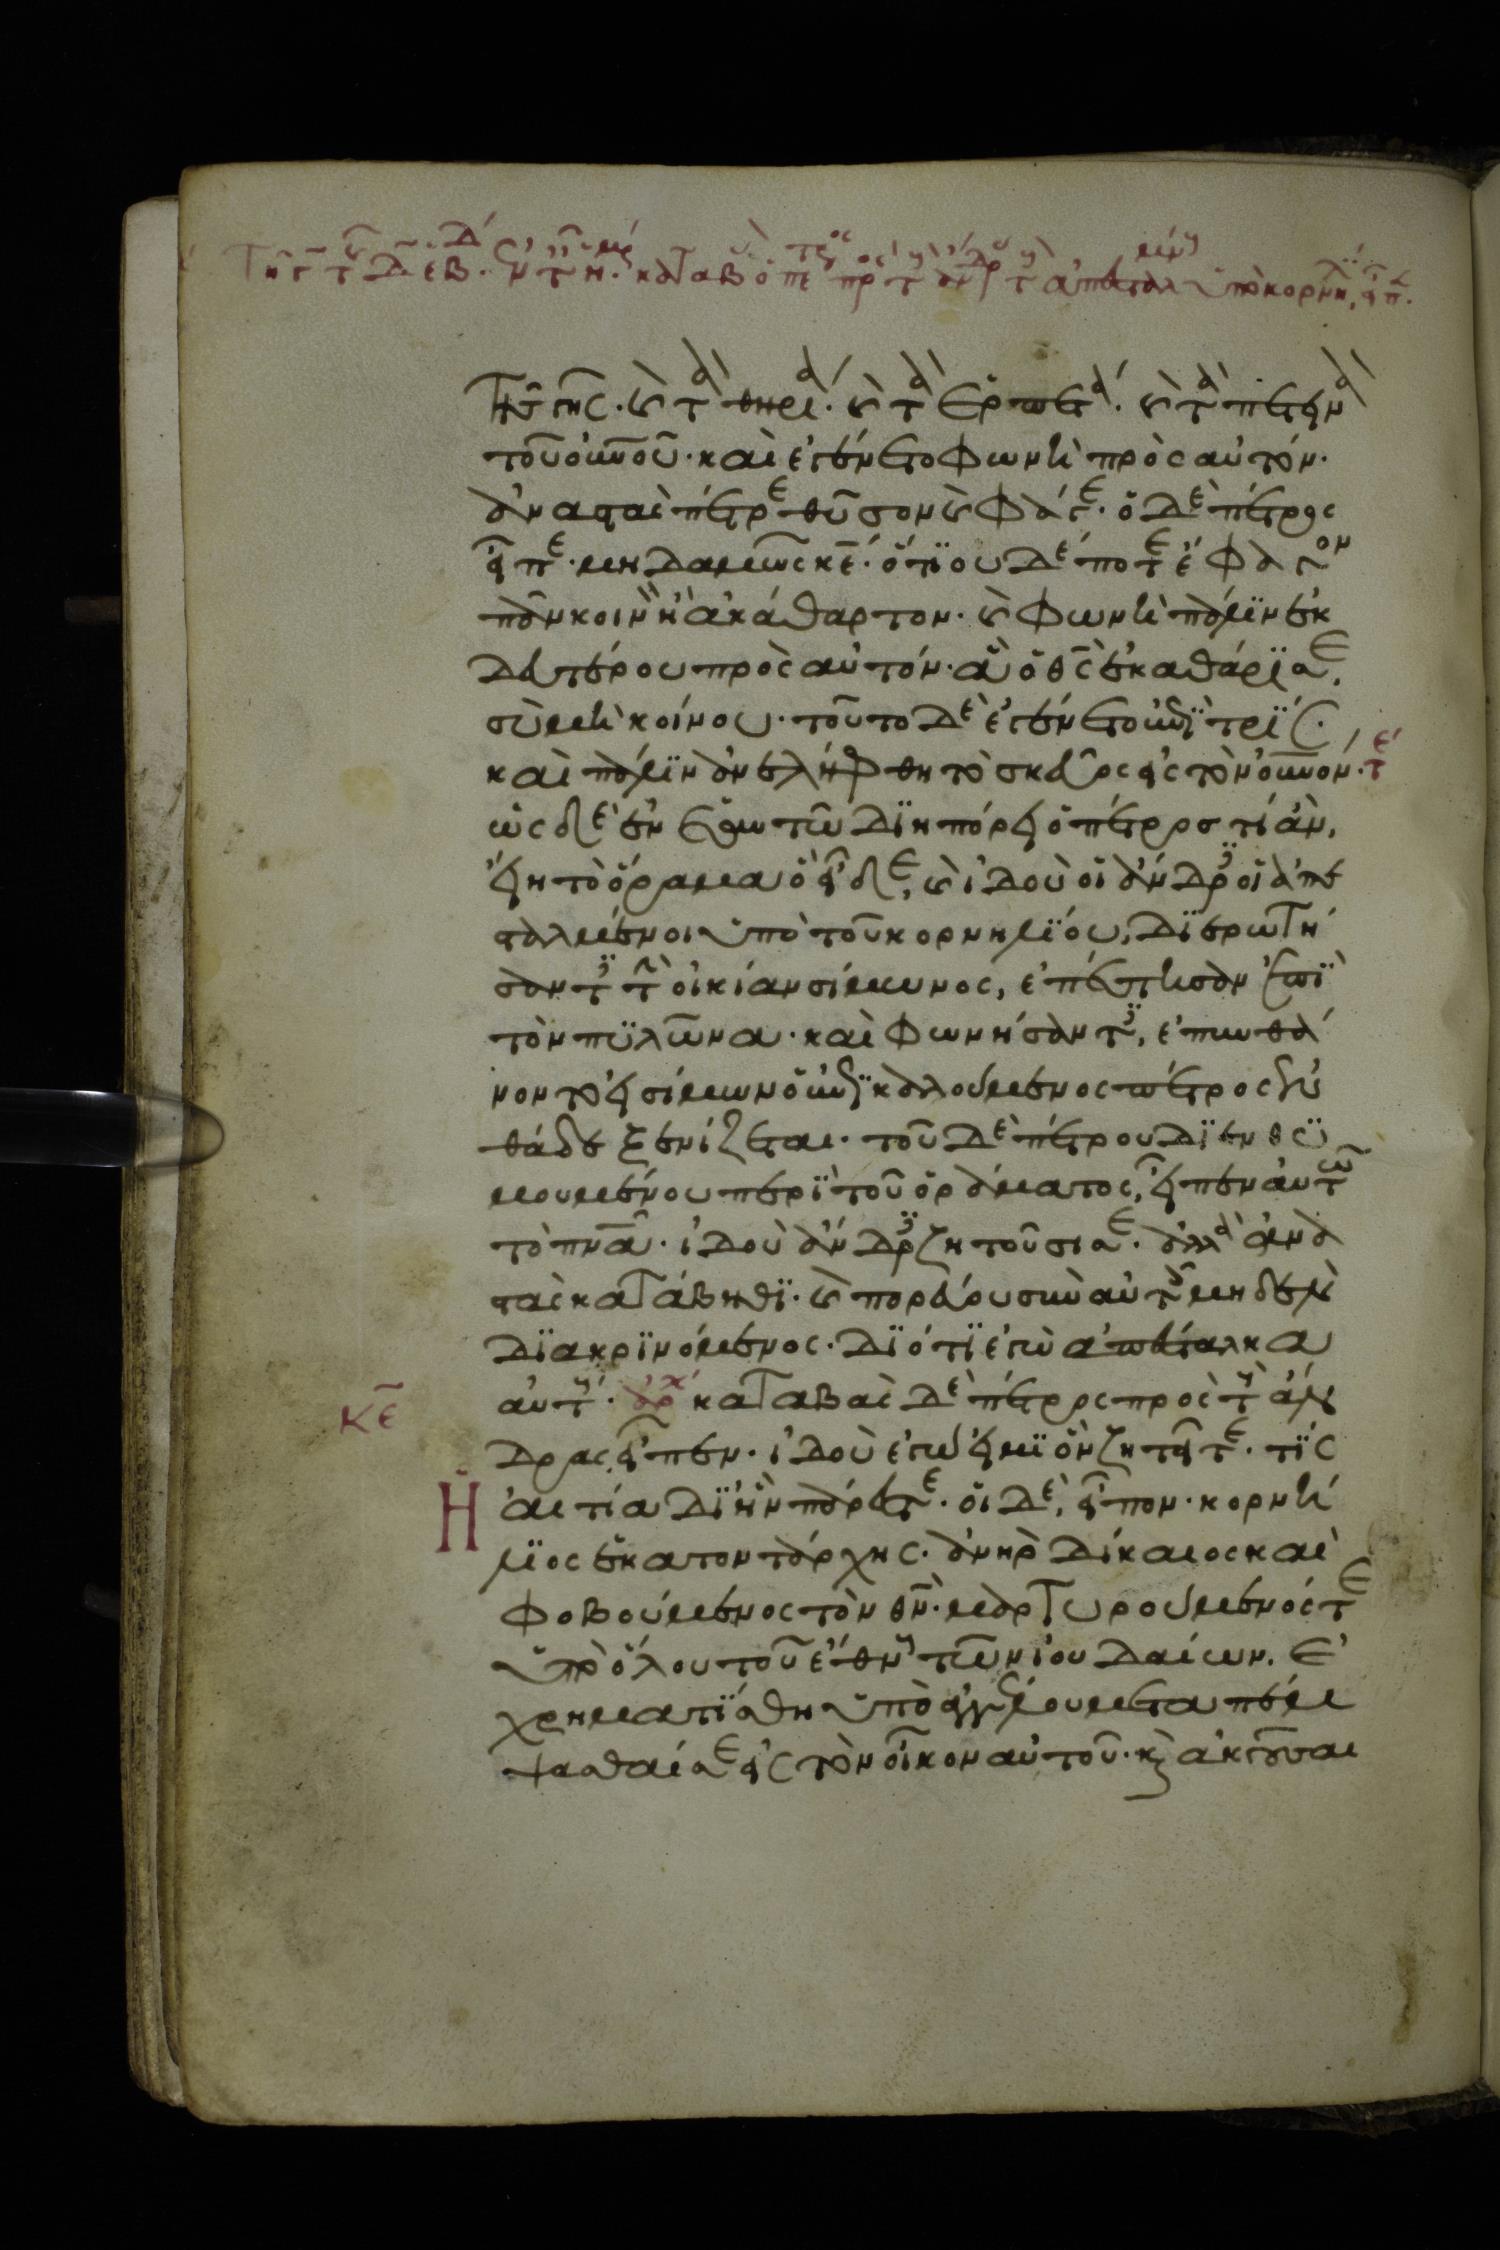 καταβὰς ὁ πέτρος πρὸς τοὺς ἄνδρας τοὺς ἀπεσταλμένους ὑπὸ κορνηλίου, εἶπε.
τῆς γῆς· καὶ τὰ θηρία· καὶ τὰ ἑρπετά· καὶ τὰ πετεινὰ
τοῦ οὐνοῦ· καὶ ἐγένετο φωνὴ πρὸς αὐτόν·
ἀναστὰς πέτρε θῦσον καὶ φάγε· ὁ δὲ πέτρος
εἶπε· μηδαμῶς κε̄· ὅτϊ οὐδέποτε ἔφαγον
πᾶν κοινὸν ἢ ἀκάθαρτον· καὶ φωνὴ πάλϊν ἐκ
δευτέρου πρὸς αὐτόν· ἃ ὁ θς̄ ἐκαθάρϊσε,
σὺ μὴ κοίνου· τοῦτο δὲ ἐγένετο ἐπῒ τρϊς·
καὶ πάλϊν ἀνελήφθη τὸ σκεῦος εἰς τὸν οὐνόν· τε
ὡς δὲ ἐν ἑαυτῶ δϊηπόρει ὁ πέτρος τί ἂν,
εἴη τὸ ὅραμα ὃ εἶδε, καὶ ἰδοὺ οἱ ἄνδρες οἱ ἀπε
σταλμένοι ὑπὸ τοῦ κορνηλϊου, δϊερωτή
σαντες τὴν οἰκίαν σίμωνος, ἐπέστησαν ἐπῒ
τὸν πϋλῶνα· καὶ φωνήσαντες, ἐπυνθά
νοντο εἰ σίμων ὁ ἐπϊκαλούμενος πέτρος ἐν
θάδε ξενίζεται· τοῦ δὲ πέτρου δϊενθϋ
μουμένου περῒ τοῦ ὁράματος, εἶπεν αὐτῶ
τὸ πνᾱ· ἰδοὺ ἄνδρες ζητοῦσι σε· ἀλλὰ ἀνα
στὰς κατάβηθϊ· καὶ πορεύου σὺν αὐτοῖς μηδὲν
δϊακρϊνόμενος· δϊότϊ ἐγὼ ἀπέσταλκα
αὐτούς· ἀρχ καταβὰς δὲ πέτρος πρὸς τοὺς ἄν
κε̄
δρας, εἶπεν· ἰδοὺ ἐγώ εἰμϊ ὃν ζητεῖτε· τϊς
Ἡ αἰτία δϊ ἣν πάρεστε· οἱ δὲ, εἶπον· κορνή
λϊος ἑκατοντάρχης· ἀνὴρ δίκαιος καὶ
φοβούμενος τὸν θν̄· μαρτυρούμενός τε
ὑπὸ ὅλου τοῦ ἔθνους τῶν ἰουδαίων. ἐ
χρηματϊσθη ὑπὸ ἀγγέλου μεταπέμ
ψασθαί σε εἰς τὸν οἶκον αὐτοῦ· καὶ ἀκοῦσαι